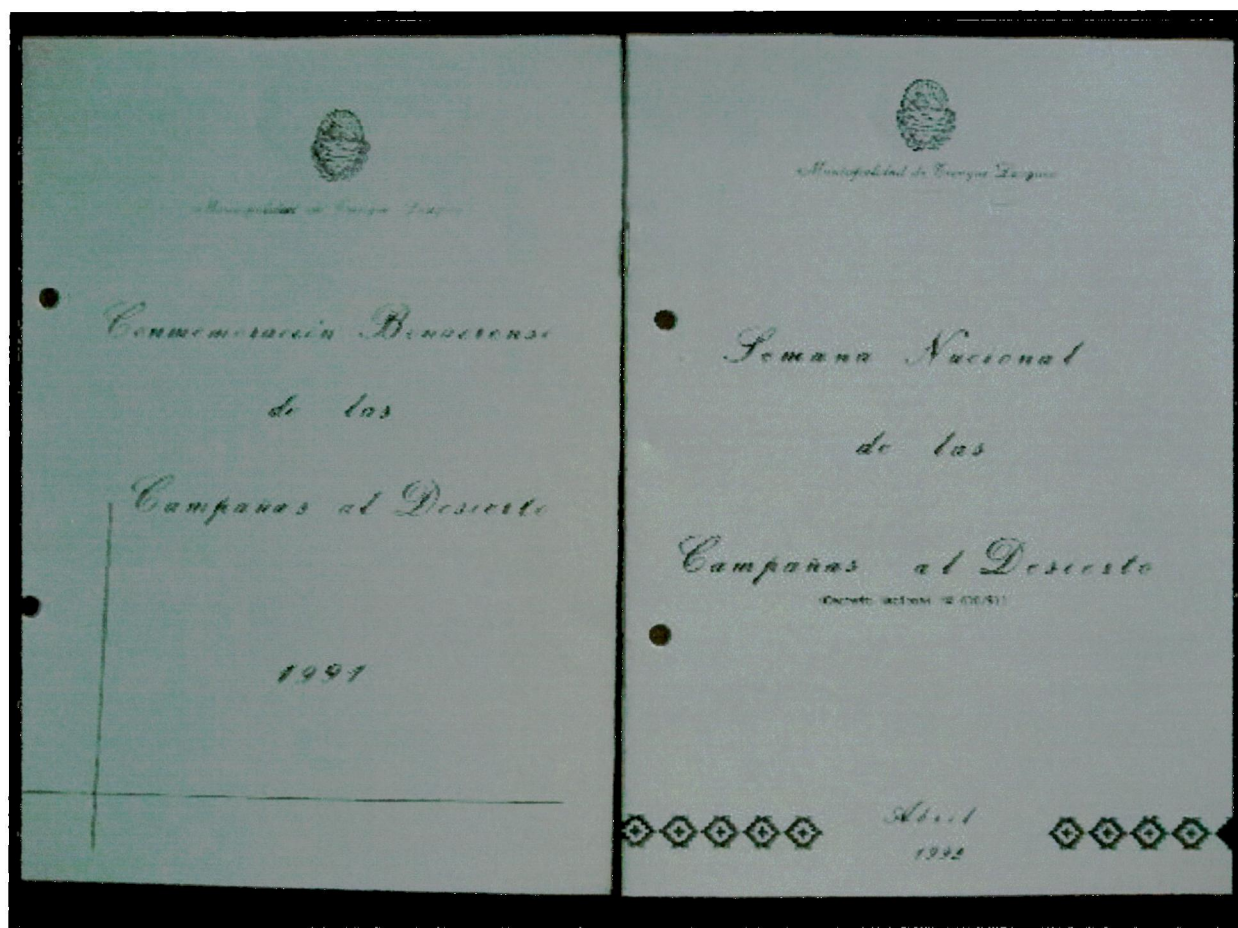 Municipalidad de Trenque Lauquen
Conmemoración Bonaerense
de las
Campañas al Desierto
1991
Municipalidad de Trenque Lauquen
Semana Nacional
de las
Campañas al Desierto
(Decreto Nacional
Abril
1992